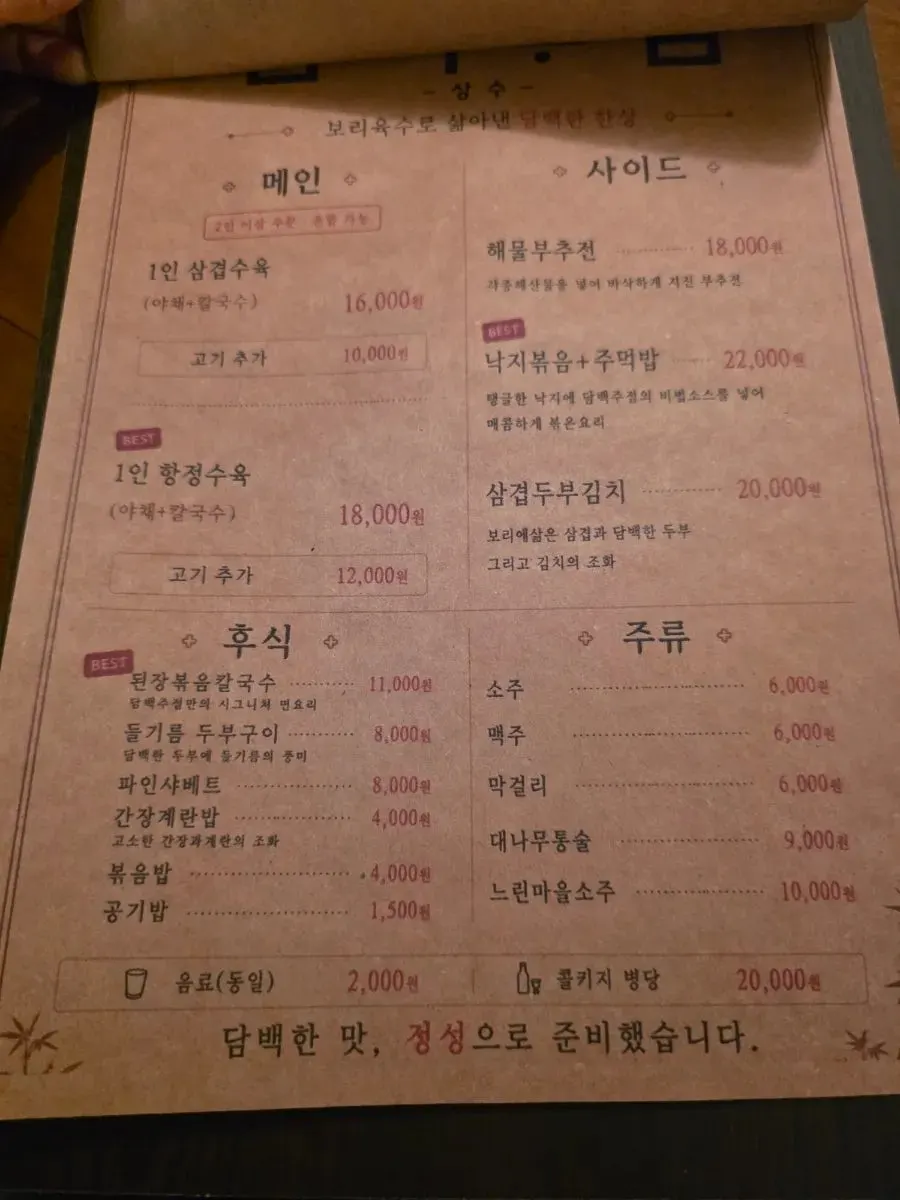 - 상수 -
보리육수로 삶아낸 담백한 한상
메인
2인 이상 주문 혼합 가능
1인 삼겹수육
(야채+칼국수) 16,000원
고기 추가 10,000원
BEST
1인 항정수육
(야채+칼국수) 18,000원
고기 추가 12,000원
사이드
해물부추전 18,000원
각종해산물을 넣어 바삭하게 지진 부추전
BEST
낙지볶음+주먹밥 22,000원
탱글한 낙지에 담백주점의 비법소스를 넣어
매콤하게 볶은요리
삼겹두부김치 20,000원
보리에삶은 삼겹과 담백한 두부
그리고 김치의 조화
후식
BEST
된장볶음칼국수 11,000원
담백주점만의 시그니쳐 면요리
들기름 두부구이 8,000원
담백한 두부에 들기름의 풍미
파인샤베트 8,000원
간장계란밥 4,000원
고소한 간장과계란의 조화
볶음밥 4,000원
공기밥 1,500원
주류
소주 6,000원
맥주 6,000원
막걸리 6,000원
대나무통술 9,000원
느린마을소주 10,000원
음료(동일) 2,000원
콜키지 병당 20,000원
담백한 맛, 정성으로 준비했습니다.